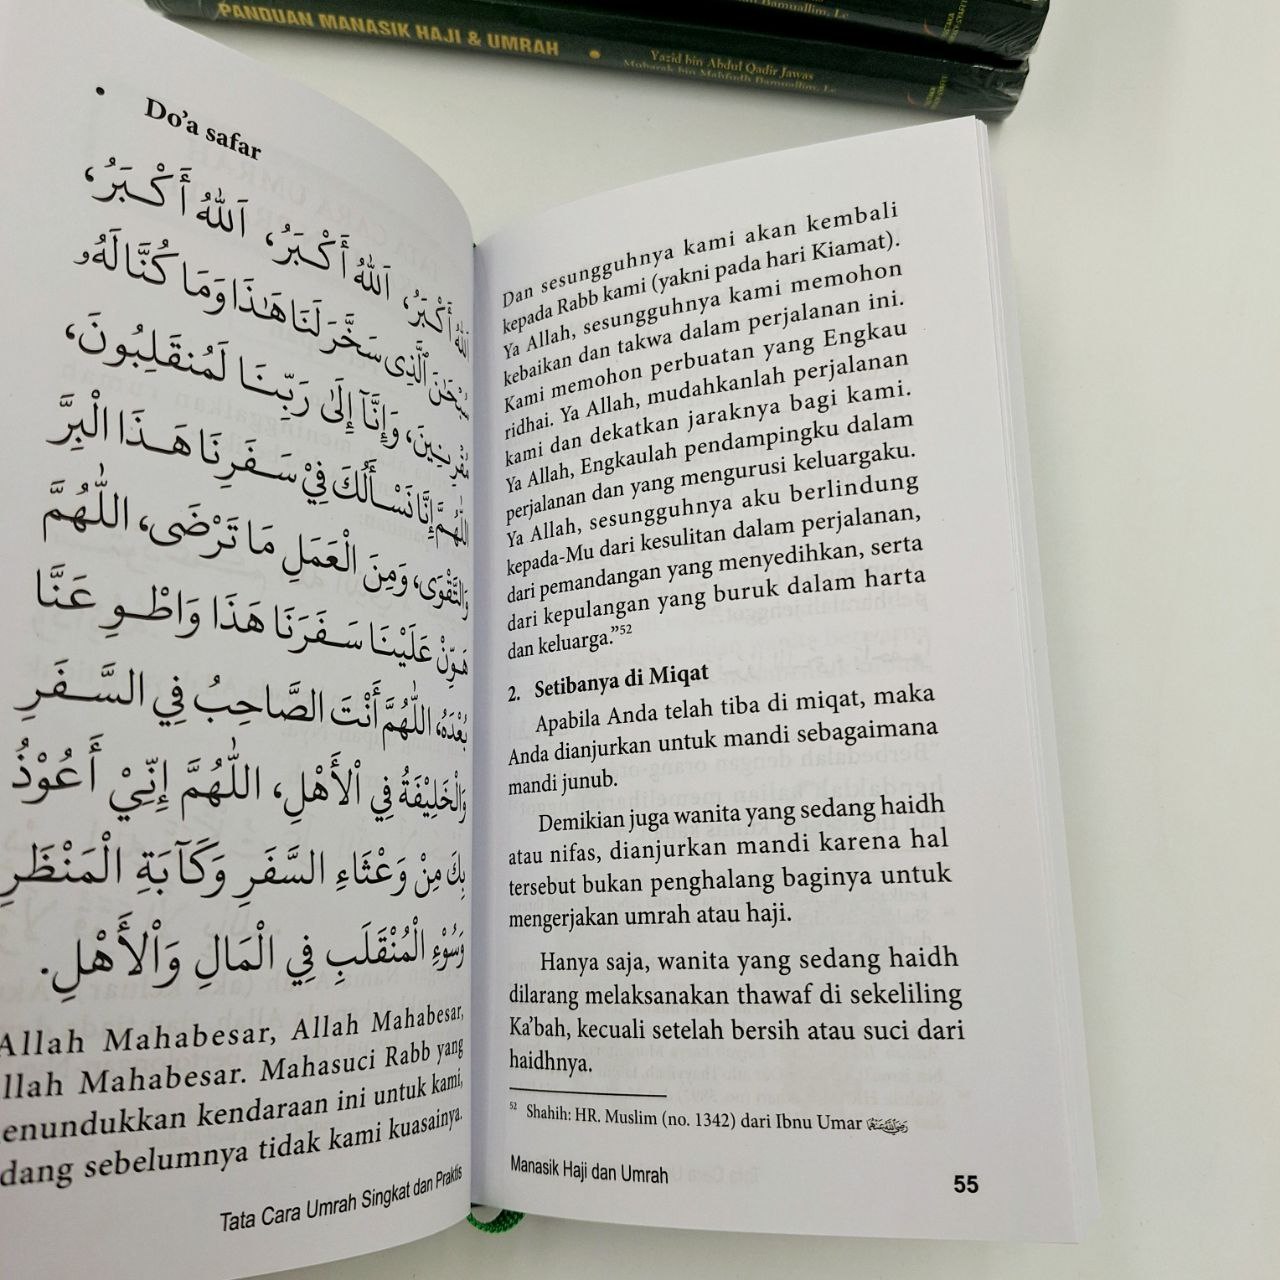 PANDUAN MANASIK HAJI & UMRAH
Yazid bin Abdul Qadir Jawas
Mubarak bin Mahfudh Bamuallim, Lc
• Do'a safar
اَللهُ أَكْبَرُ، اَللهُ أَكْبَرُ، اَللهُ أَكْبَرُ،
سُبْحَانَ الَّذِى سَخَّرَ لَنَا هَـٰذَا وَمَا كُنَّا لَهُ
مُقْرِنِينَ، وَإِنَّآ إِلَىٰ رَبِّنَا لَمُنقَلِبُونَ،
اللّٰهُمَّ إِنَّا نَسْأَلُكَ فِيْ سَفَرِنَا هَـذَا الْبِرَّ
وَالتَّقْوَى، وَمِنَ الْعَمَلِ مَا تَرْضَى، اللّٰهُمَّ
هَوِّنْ عَلَيْنَا سَفَرَنَا هَذَا وَاطْوِ عَنَّا
بُعْدَهُ، اللّٰهُمَّ أَنْتَ الصَّاحِبُ فِي السَّفَرِ
وَالْخَلِيْفَةُ فِي الْأَهْلِ، اللّٰهُمَّ إِنِّيْ أَعُوْذُ
بِكَ مِنْ وَعْثَاءِ السَّفَرِ وَكَآبَةِ الْمَنْظَرِ
وَسُوْءِ الْمُنْقَلَبِ فِي الْمَالِ وَالْأَهْلِ.
Allah Mahabesar, Allah Mahabesar,
llah Mahabesar. Mahasuci Rabb yang
enundukkan kendaraan ini untuk kami,
dang sebelumnya tidak kami kuasainya.
Tata Cara Umrah Singkat dan Praktis
Dan sesungguhnya kami akan kembali
kepada Rabb kami (yakni pada hari Kiamat).
Ya Allah, sesungguhnya kami memohon
kebaikan dan takwa dalam perjalanan ini.
Kami memohon perbuatan yang Engkau
ridhai. Ya Allah, mudahkanlah perjalanan
kami dan dekatkan jaraknya bagi kami.
Ya Allah, Engkaulah pendampingku dalam
perjalanan dan yang mengurusi keluargaku.
Ya Allah, sesungguhnya aku berlindung
kepada-Mu dari kesulitan dalam perjalanan,
dari pemandangan yang menyedihkan, serta
dari kepulangan yang buruk dalam harta
dan keluarga."52
2. Setibanya di Miqat
Apabila Anda telah tiba di miqat, maka
Anda dianjurkan untuk mandi sebagaimana
mandi junub.
Demikian juga wanita yang sedang haidh
atau nifas, dianjurkan mandi karena hal
tersebut bukan penghalang baginya untuk
mengerjakan umrah atau haji.
Hanya saja, wanita yang sedang haidh
dilarang melaksanakan thawaf di sekeliling
Ka'bah, kecuali setelah bersih atau suci dari
haidhnya.
52 Shahih: HR. Muslim (no. 1342) dari Ibnu Umar
Manasik Haji dan Umrah
55